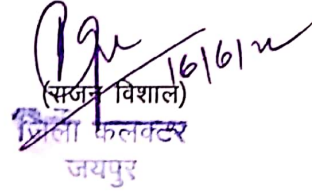 16/6/22
(राजन विशाल)
जिला कलक्टर
जयपुर